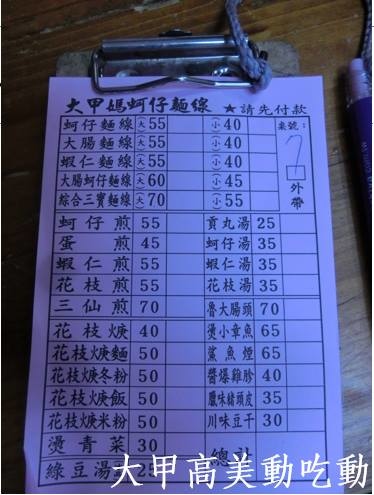 大甲媽蚵仔麵線 ★請先付款
蚵仔麵線(大)55 (小)40 桌號：
大腸麵線(大)55 (小)40 7
蝦仁麵線(大)55 (小)40
大腸蚵仔麵線(大)60 (小)45 外帶
綜合三寶麵線(大)70 (小)55
蚵仔煎 55 貢丸湯 25
蛋煎 45 蝦仁湯 35
蝦仁煎 55 蚵仔湯 35
花枝煎 55 花枝湯 35
三仙煎 70 魯大腸頭 70
花枝焿 40 燙小章魚 65
花枝焿麵 50 鯊魚煙 65
花枝焿冬粉 50 醬爆雞胗 40
花枝焿飯 50 臘味豬頭皮 35
花枝焿米粉 50 川味豆干 30
燙青菜 30 總計
綠豆湯 25
大甲高美動吃動